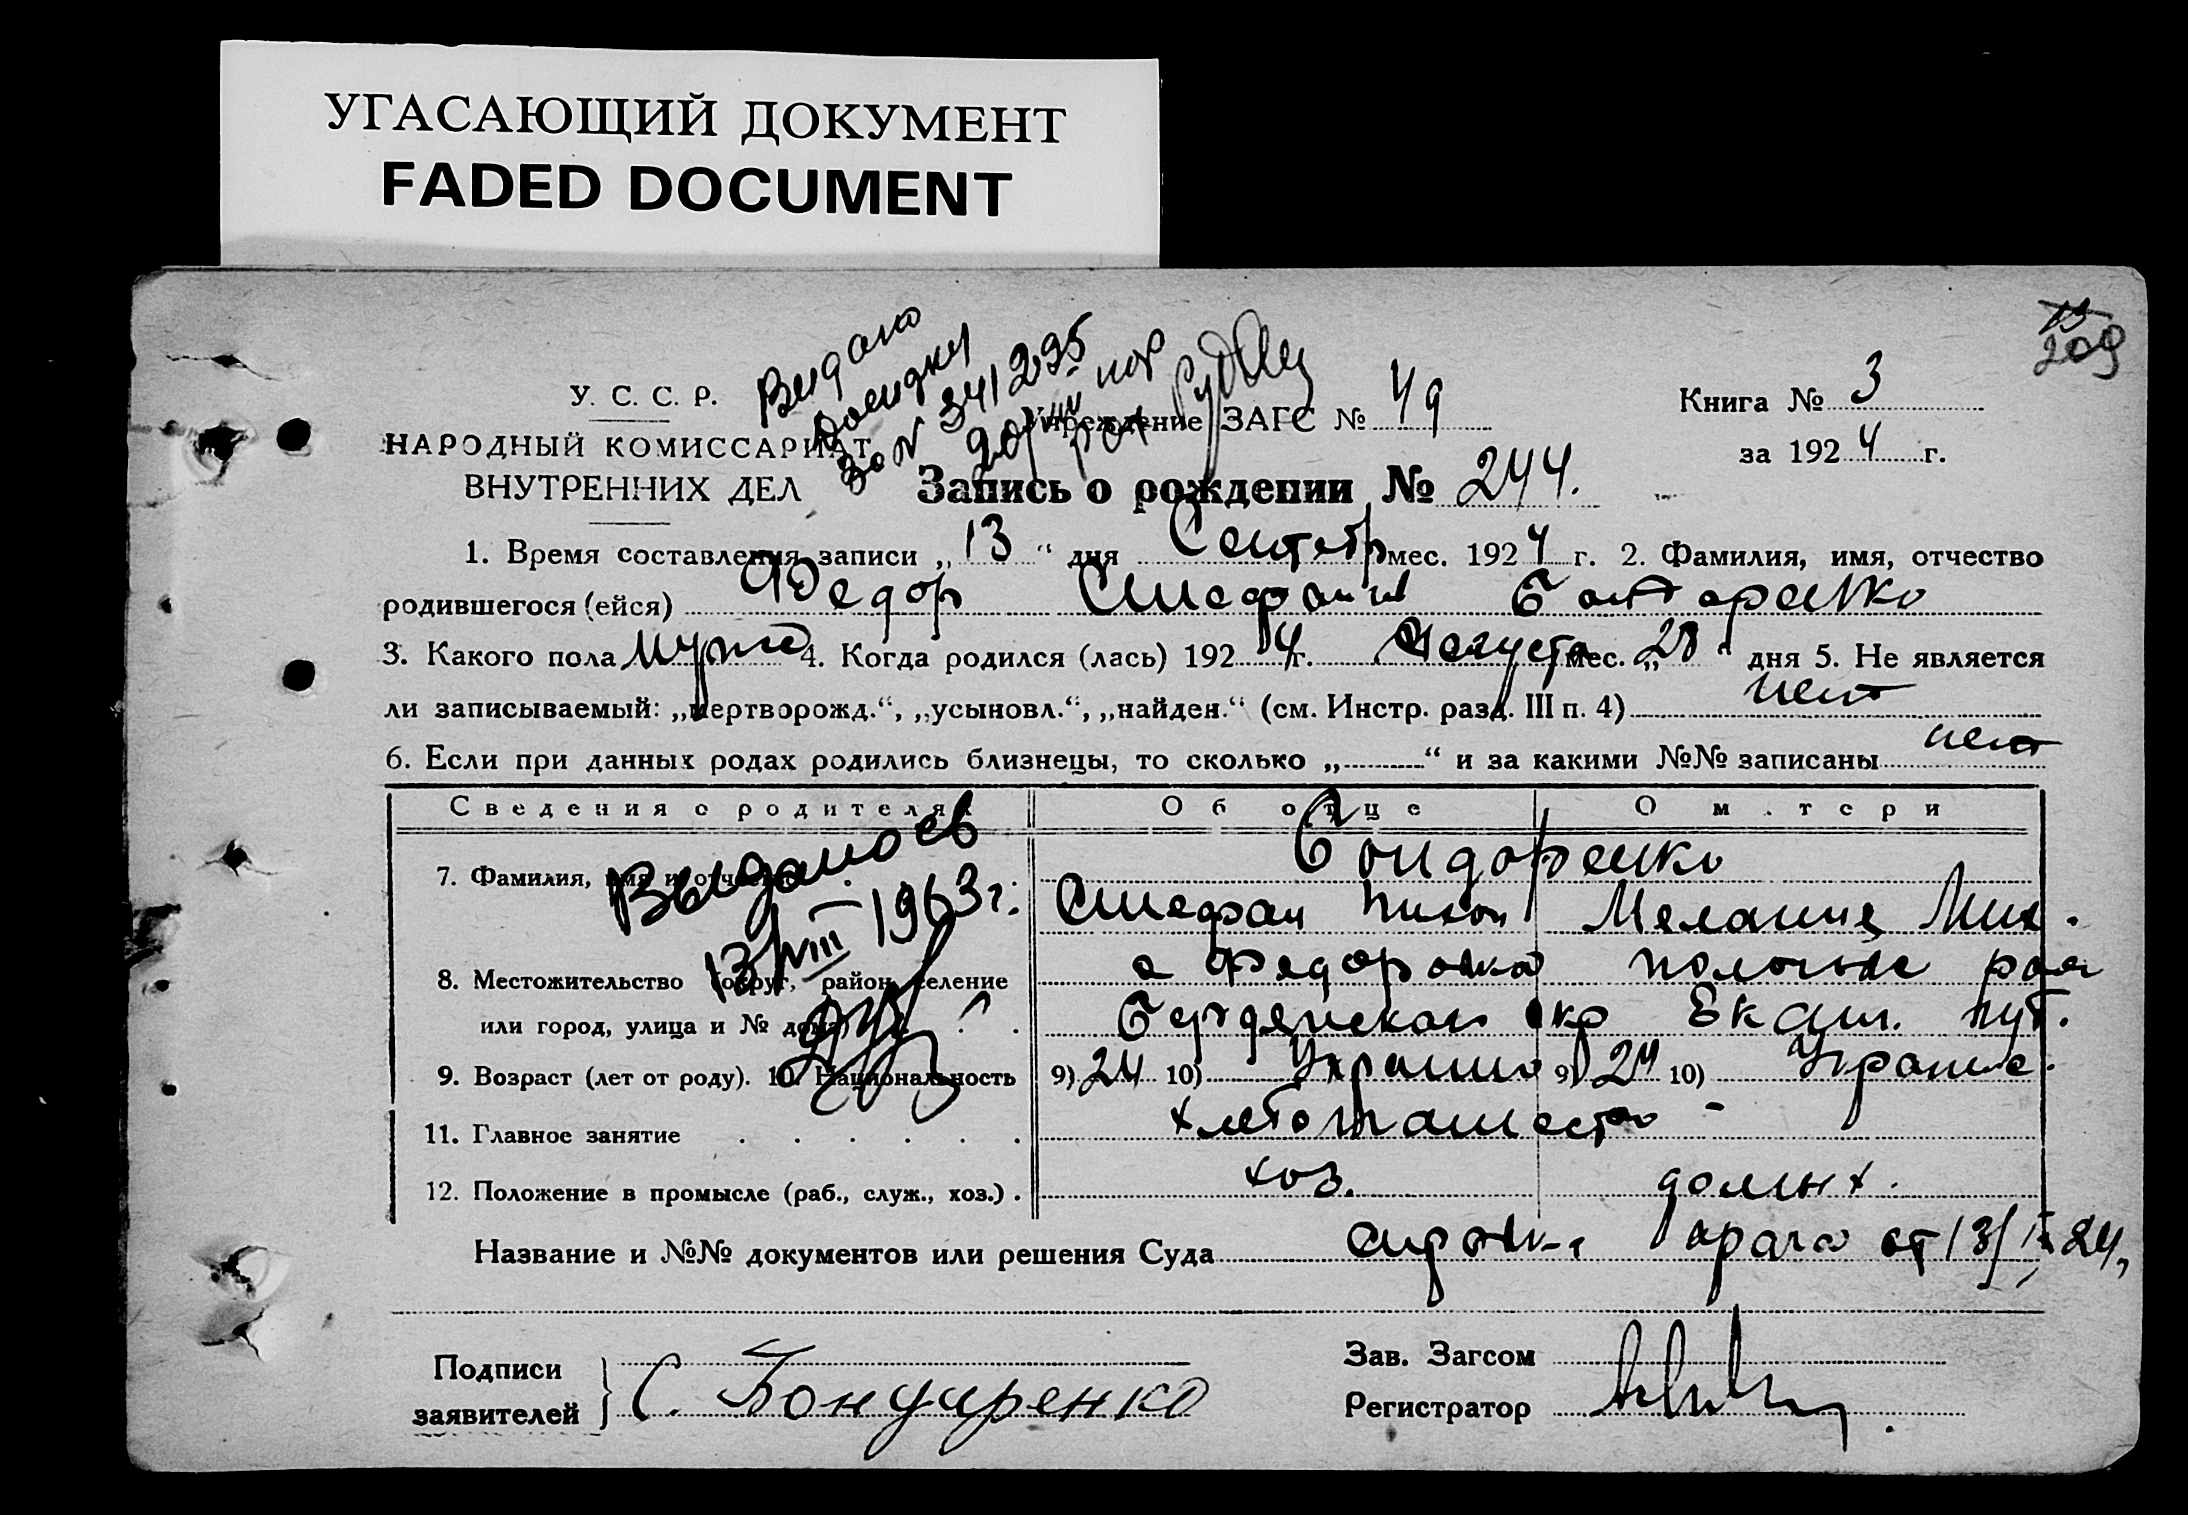 УГАСАЮЩИЙ ДОКУМЕНТ
FADED DOCUMENT
209
У. С. С. Р.
НАРОДНЫЙ КОМИССАРИАТ
ВНУТРЕННИХ ДЕЛ
Видано
за № 341295
Учреждение ЗАГС № 49
Книга № 3
за 1924 г.
Запись о рождении № 244.
1. Время составления записи „13“ дня Сентябр мес. 1924 г. 2. Фамилия, имя, отчество
родившегося (ейся) Федор Стефанов Бондаренко
3. Какого пола мужс 4. Когда родился (лась) 1924 г. Августа мес. „28“ дня 5. Не является
ли записываемый: „мертворожд.“, „усыновл.“, „найден.“ (см. Инстр. разд. III п. 4) нет
6. Если при данных родах родились близнецы, то сколько „ “ и за какими №№ записаны нет
Сведения о родителях Об отце О матери
7. Фамилия, имя и отчество Бондаренко
Стефан Тихон Мелания Мих.
8. Местожительство (округ, район, селение
или город, улица и № дома) Бердянской окр Екат. губ.
9. Возраст (лет от роду). 10. Национальность 9) 24 10) Украине 9) 24 10) Украине.
11. Главное занятие хлебопашество
12. Положение в промысле (раб., служ., хоз.) хоз. домых.
Выдано св
13/VIII-1963 г.
Название и №№ документов или решения Суда от 13/IX 24,
Подписи
заявителей С. Бондаренко
Зав. Загсом
Регистратор